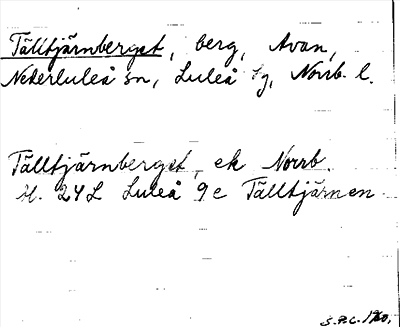 Tälltjärnberget, berg, Avan,
Nederluleå sn, Luleå tg, Norrb. l.
Tälltjärnberget, ek Norrb.
bl. 24L Luleå 9c Tälltjärnen
S.P.C. 1960.